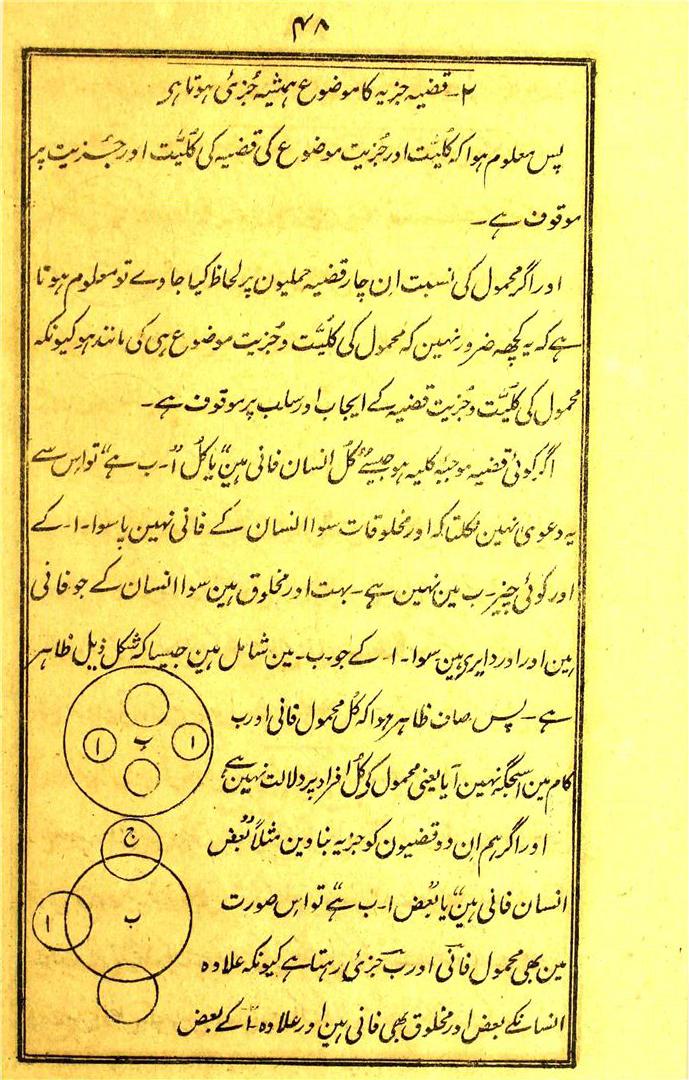 ۴۸
۲- قضیہ جزیہ کا موضوع ہمیشہ جُزئی ہوتا ہی
پس معلوم ہوا کہ کلیّت اور جُزیت موضوع کی قضیہ کی کلیّت اور جزیت پر
موقوف ہے۔
اور اگر محمول کی نسبت اِن چار قضیہ حملیون پر لحاظ کیا جاوے تو معلوم ہوتا
ہے کہ یہ کچھہ ضرور نہین کہ محمول کی کلیّت و جُزیت موضوع ہی کی مانند ہو کیونکہ
محمول کی کلیّت و جُزیت قضیہ کے ایجاب اور سلب پر موقوف ہے۔
اگر کوئی قضیہ موجبۂ کلیہ ہو جیسے ”کُل انسان فانی ہین“ یا ”کُل ا۔ ب ہے“ تو اس سے
یہ دعوی نہین نکلتا کہ اور مخلوقات سوا انسان کے فانی نہین یا سوا۔ ا۔ کے
اور کوئی چیز۔ ب مین نہین ہے۔ بہت اور مخلوق ہین سوا انسان کے جو فانی
ہین اور اور دایرے ہین سوا۔ ا۔ کے جو۔ ب۔ مین شامل ہین جیسا کہ شکل ذیل ظاہر
ہے۔ پس صاف ظاہر ہوا کہ کُل محمول فانی اور ب
کام مین اسجگہ نہین آیا یعنی محمول کی کُل افراد پر دلالت نہین ہے
ا
ب
ا
اور اگر ہم اِن دو قضیون کو جزیہ بناوین مثلاً ”بعض
انسان فانی ہین“ یا ”بعض ا۔ ب ہے“ تو اس صورت
مین بھی محمول فانی اور ب جزئی رہتا ہے کیونکہ علاوہ
انسانکے بعض اور مخلوق بھی فانی ہین اور علاوہ ۔ا۔ کے بعض
ج
ا
ب